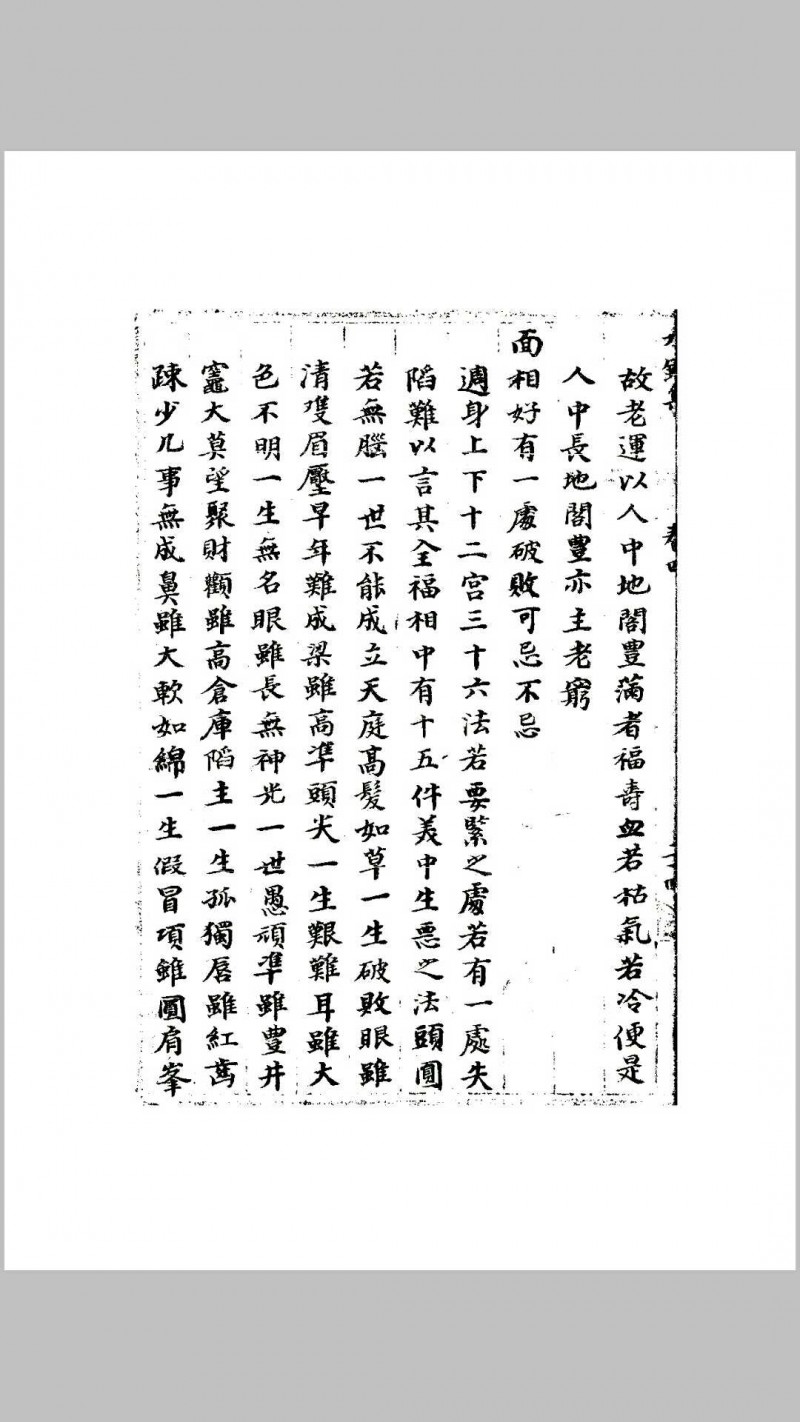 故老運以人中地閣豊滿者福壽血若枯氣若冷便是
人中長地閣豊亦主老窮
面相好有一處破敗可忌不忌
週身上下十二宫三十六法若要緊之處若有一處失
陷難以言其全福相中有十五件美中生悪之法頭圓
若無腦一世不能成立天庭髙髮如草一生破敗眼雖
清雙眉壓早年難成梁雖高準頭尖一生艱難耳雖大
色不明一生無名眼雖長無神光一世愚頑準雖豊井
竈大莫望聚財顴雖高倉庫陷主一生孤獨唇雖紅齒
疎少凡事無成鼻雖大軟如綿一生假冒項雖圓肩峯